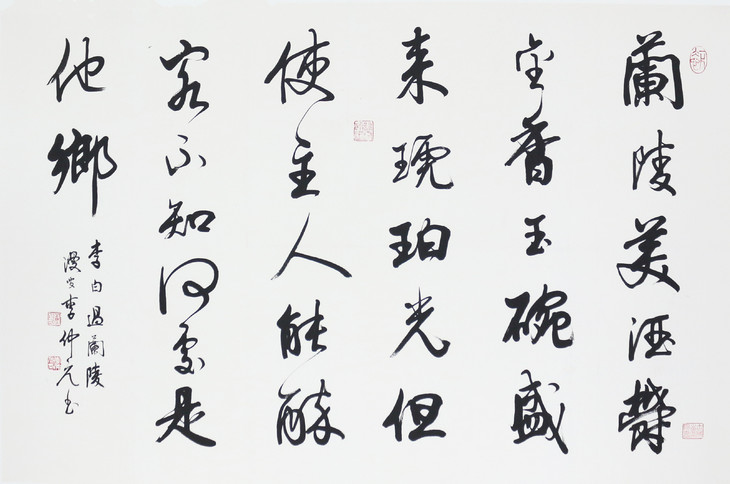 蘭陵美酒鬱
金香玉碗盛
来琥珀光但
使主人能醉
客不知何處是
他鄉
李白過蘭陵
漫李仲元书